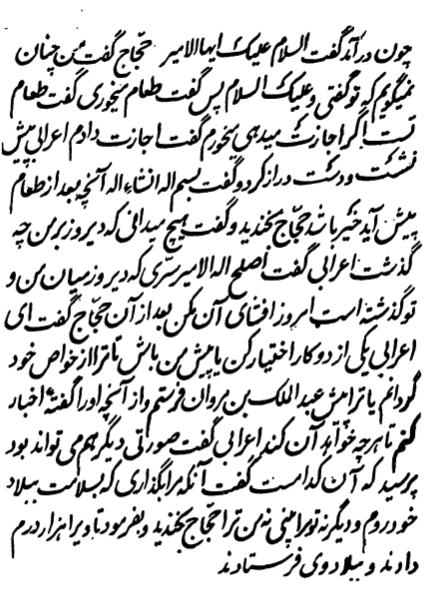 چون درآمد گفت السلام علیک ایها الامیر حجاج گفت من چنان
نمیگویم که تو گفتی و علیک السلام پس گفت طعام میخوری گفت طعام
تست اگر اجازت میدهی بخورم گفت اجازت دادم اعرابی پیش
نشست و دست دراز کرد و گفت بسم اله انشاء اله آنچه بعد از طعام
پیش آید خیر باشد حجاج بخندید و گفت هیچ میدانی که دیروز بر من چه
گذشت اعرابی گفت اصلح اله الامیر سرّی که دیروز میان من و
تو گذشته است امروز افشای آن مکن بعد از آن حجاج گفت ای
اعرابی یکی از دو کار اختیار کن یا پیش من باش تا ترا از خواص خود
گردانم یا ترا پیش عبد الملک بن مروان فرستم و از آنچه او را گفتهٔ اخبار
کنم تا هر چه خواهد آن کند اعرابی گفت صورتی دیگر هم می تواند بود
پرسید که آن کدامست گفت آنکه مرا بگذاری که بسلامت ببلاد
خود روم و دیگر نه تو مرا بینی نه من ترا حجاج بخندید و بفرمود تا ویرا هزار درم
دادند و ببلاد وی فرستادند